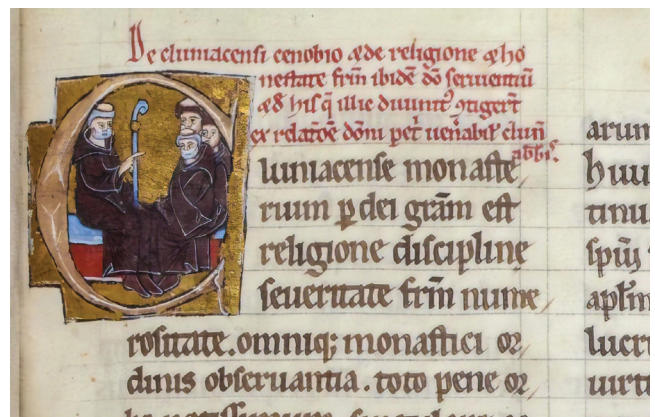 De cluniacensi cenobio & de religione & ho
nestate frm̄ ibidē dō seruientiū
& d̄ his q̄ illic diuunt᷒ ꝯtigert̄
ex relatōe dōni pet᷒ uen̄abil᷒ cluñ
abb̄is.
luniacense monaste
rium ꝑ dei grām est
religione discipline
seueritate frm̄ nume
rositate. omniq; monastici or
dinis obseruantia. toto pene or
arum
huu
tinu
spiū
apłm
lucr
uirt